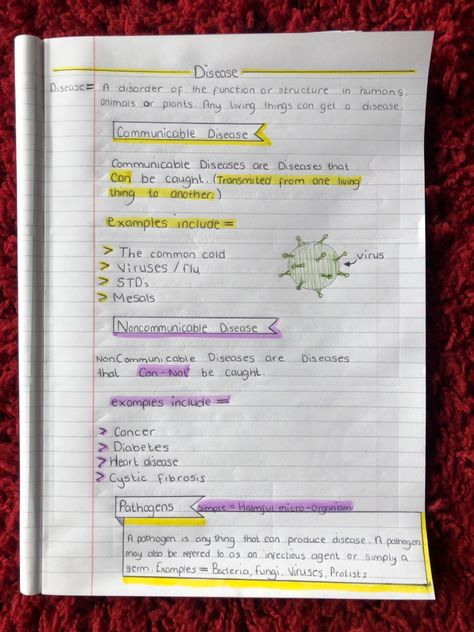 Disease
Disease = A disorder of the function or structure in humans,
animals or plants. Any living things can get a disease.
Communicable Disease
Communicable Diseases are Diseases that
Can be caught. (Transmited from one living
thing to another.)
examples include =
> The common cold
> Viruses / flu
> STDs
> Mesals
virus
Noncommunicable Disease
NonCommunicable Diseases are Diseases
that Can-Not be caught.
examples include =
> Cancer
> Diabetes
> Heart disease
> Cystic fibrosis
Pathogens simple = Halmful micro-organism
A pathogen is any thing that can produce disease. A pathogen
may also be refered to as an infectious agent or simply a
germ. Examples = Bacteria, fungi, Viruses, Protists